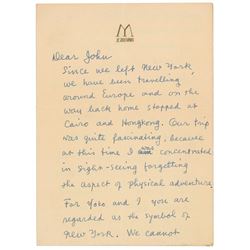 Dear John
Since we left New York,
we have been travelling
around Europe and on the
way back home stopped at
Cairo and Hongkong. Our trip
was quite fascinating, because
at this time I was concentrated
in sight-seeing forgetting
the aspect of physical adventure.
For Yoko and I you are
regarded as the symbol of
New York. We cannot